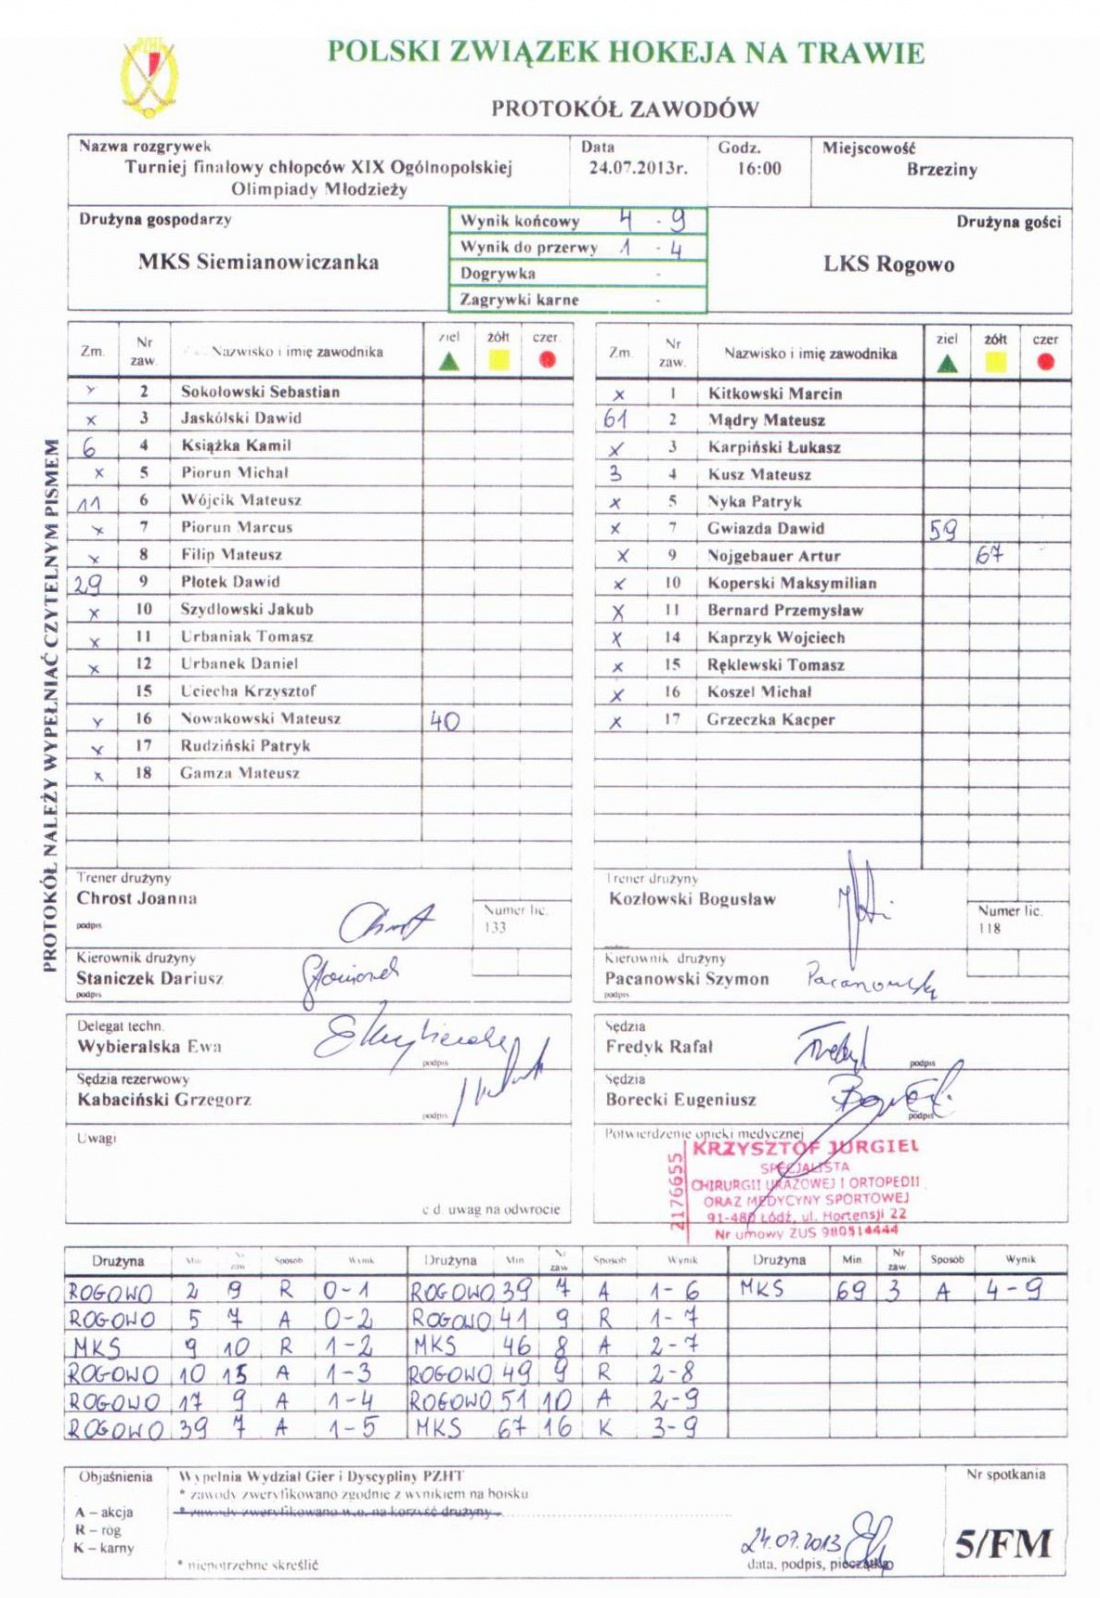 POLSKI ZWIĄZEK HOKEJA NA TRAWIE
PROTOKÓŁ ZAWODÓW
Nazwa rozgrywek Data Godz. Miejscowość
Turniej finałowy chłopców XIX Ogólnopolskiej 24.07.2013r. 16:00 Brzeziny
Olimpiady Młodzieży
Drużyna gospodarzy Wynik końcowy 4 - 9 Drużyna gości
MKS Siemianowiczanka Wynik do przerwy 1 - 4 LKS Rogowo
Dogrywka -
Zagrywki karne -
PROTOKÓŁ NALEŻY WYPEŁNIAĆ CZYTELNYM PISMEM
Zm. Nr zaw. Nazwisko i imię zawodnika ziel żółt czer.
x 2 Sokołowski Sebastian
x 3 Jaskólski Dawid
6 4 Książka Kamil
x 5 Piorun Michał
11 6 Wójcik Mateusz
x 7 Piorun Marcus
x 8 Filip Mateusz
29 9 Płotek Dawid
x 10 Szydłowski Jakub
x 11 Urbaniak Tomasz
x 12 Urbanek Daniel
15 Uciecha Krzysztof
x 16 Nowakowski Mateusz 40
x 17 Rudziński Patryk
x 18 Gamza Mateusz
Zm. Nr zaw. Nazwisko i imię zawodnika ziel żółt czer
x 1 Kitkowski Marcin
61 2 Mądry Mateusz
x 3 Karpiński Łukasz
3 4 Kusz Mateusz
x 5 Nyka Patryk
x 7 Gwiazda Dawid 59
x 9 Nojgebauer Artur 67
x 10 Koperski Maksymilian
x 11 Bernard Przemysław
x 14 Kaprzyk Wojciech
x 15 Ręklewski Tomasz
x 16 Koszel Michał
x 17 Grzeczka Kacper
Trener drużyny
Chrost Joanna
podpis Chrost
Numer lic.
133
Kierownik drużyny
Staniczek Dariusz
podpis
Trener drużyny
Kozłowski Bogusław
Numer lic.
118
Kierownik drużyny
Pacanowski Szymon Pacanowski
podpis
Delegat techn.
Wybieralska Ewa
podpis
Sędzia rezerwowy
Kabaciński Grzegorz
podpis
Uwagi
c d. uwag na odwrocie
Sędzia
Fredyk Rafał
podpis
Sędzia
Borecki Eugeniusz
podpis
Potwierdzenie opieki medycznej
2176655
KRZYSZTOF JURGIEL
SPECJALISTA
CHIRURGII URAZOWEJ I ORTOPEDII
ORAZ MEDYCYNY SPORTOWEJ
91-480 Łódź, ul. Hortensji 22
Nr umowy ZUS 980514444
Drużyna Min Nr zaw Sposób Wynik Drużyna Min Nr zaw Sposób Wynik Drużyna Min Nr zaw. Sposób Wynik
ROGOWO 2 9 R 0-1 ROGOWO 39 7 A 1-6 MKS 69 3 A 4-9
ROGOWO 5 7 A 0-2 ROGOWO 41 9 R 1-7
MKS 9 10 R 1-2 MKS 46 8 A 2-7
ROGOWO 10 15 A 1-3 ROGOWO 49 9 R 2-8
ROGOWO 17 9 A 1-4 ROGOWO 51 10 A 2-9
ROGOWO 39 7 A 1-5 MKS 67 16 K 3-9
Objaśnienia
A – akcja
R – róg
K – karny
Wypełnia Wydział Gier i Dyscypliny PZHT
* zawody zweryfikowano zgodnie z wynikiem na boisku
* zawody zweryfikowano w.o. na korzyść drużyny
* niepotrzebne skreślić
24.07.2013
data, podpis, pieczątka
Nr spotkania
5/FM